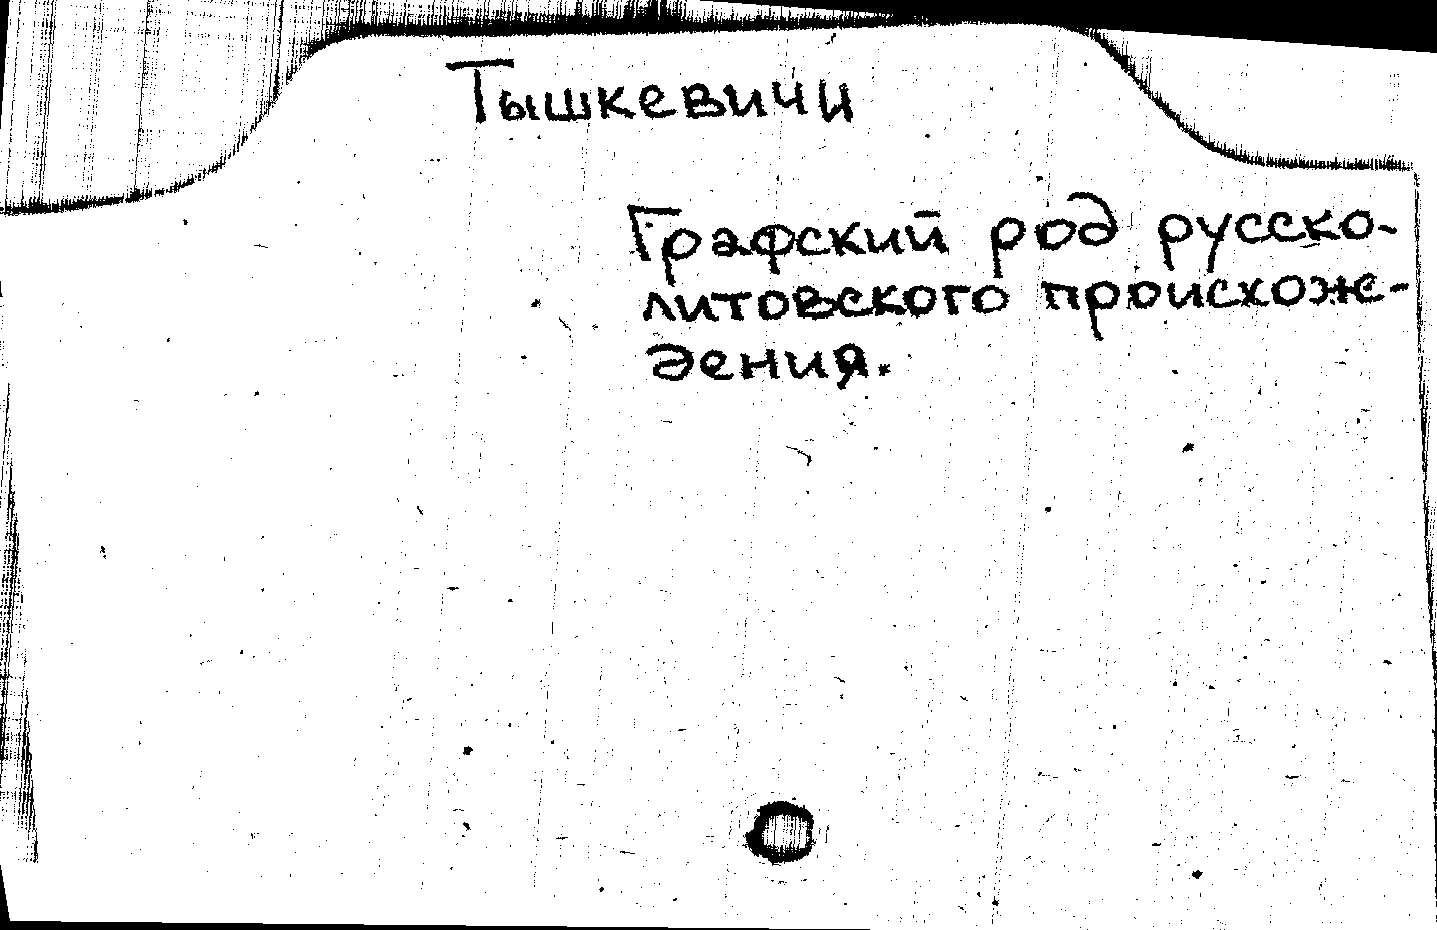 Тышкевичи
Графский род русско-
литовского происхож-
дения.